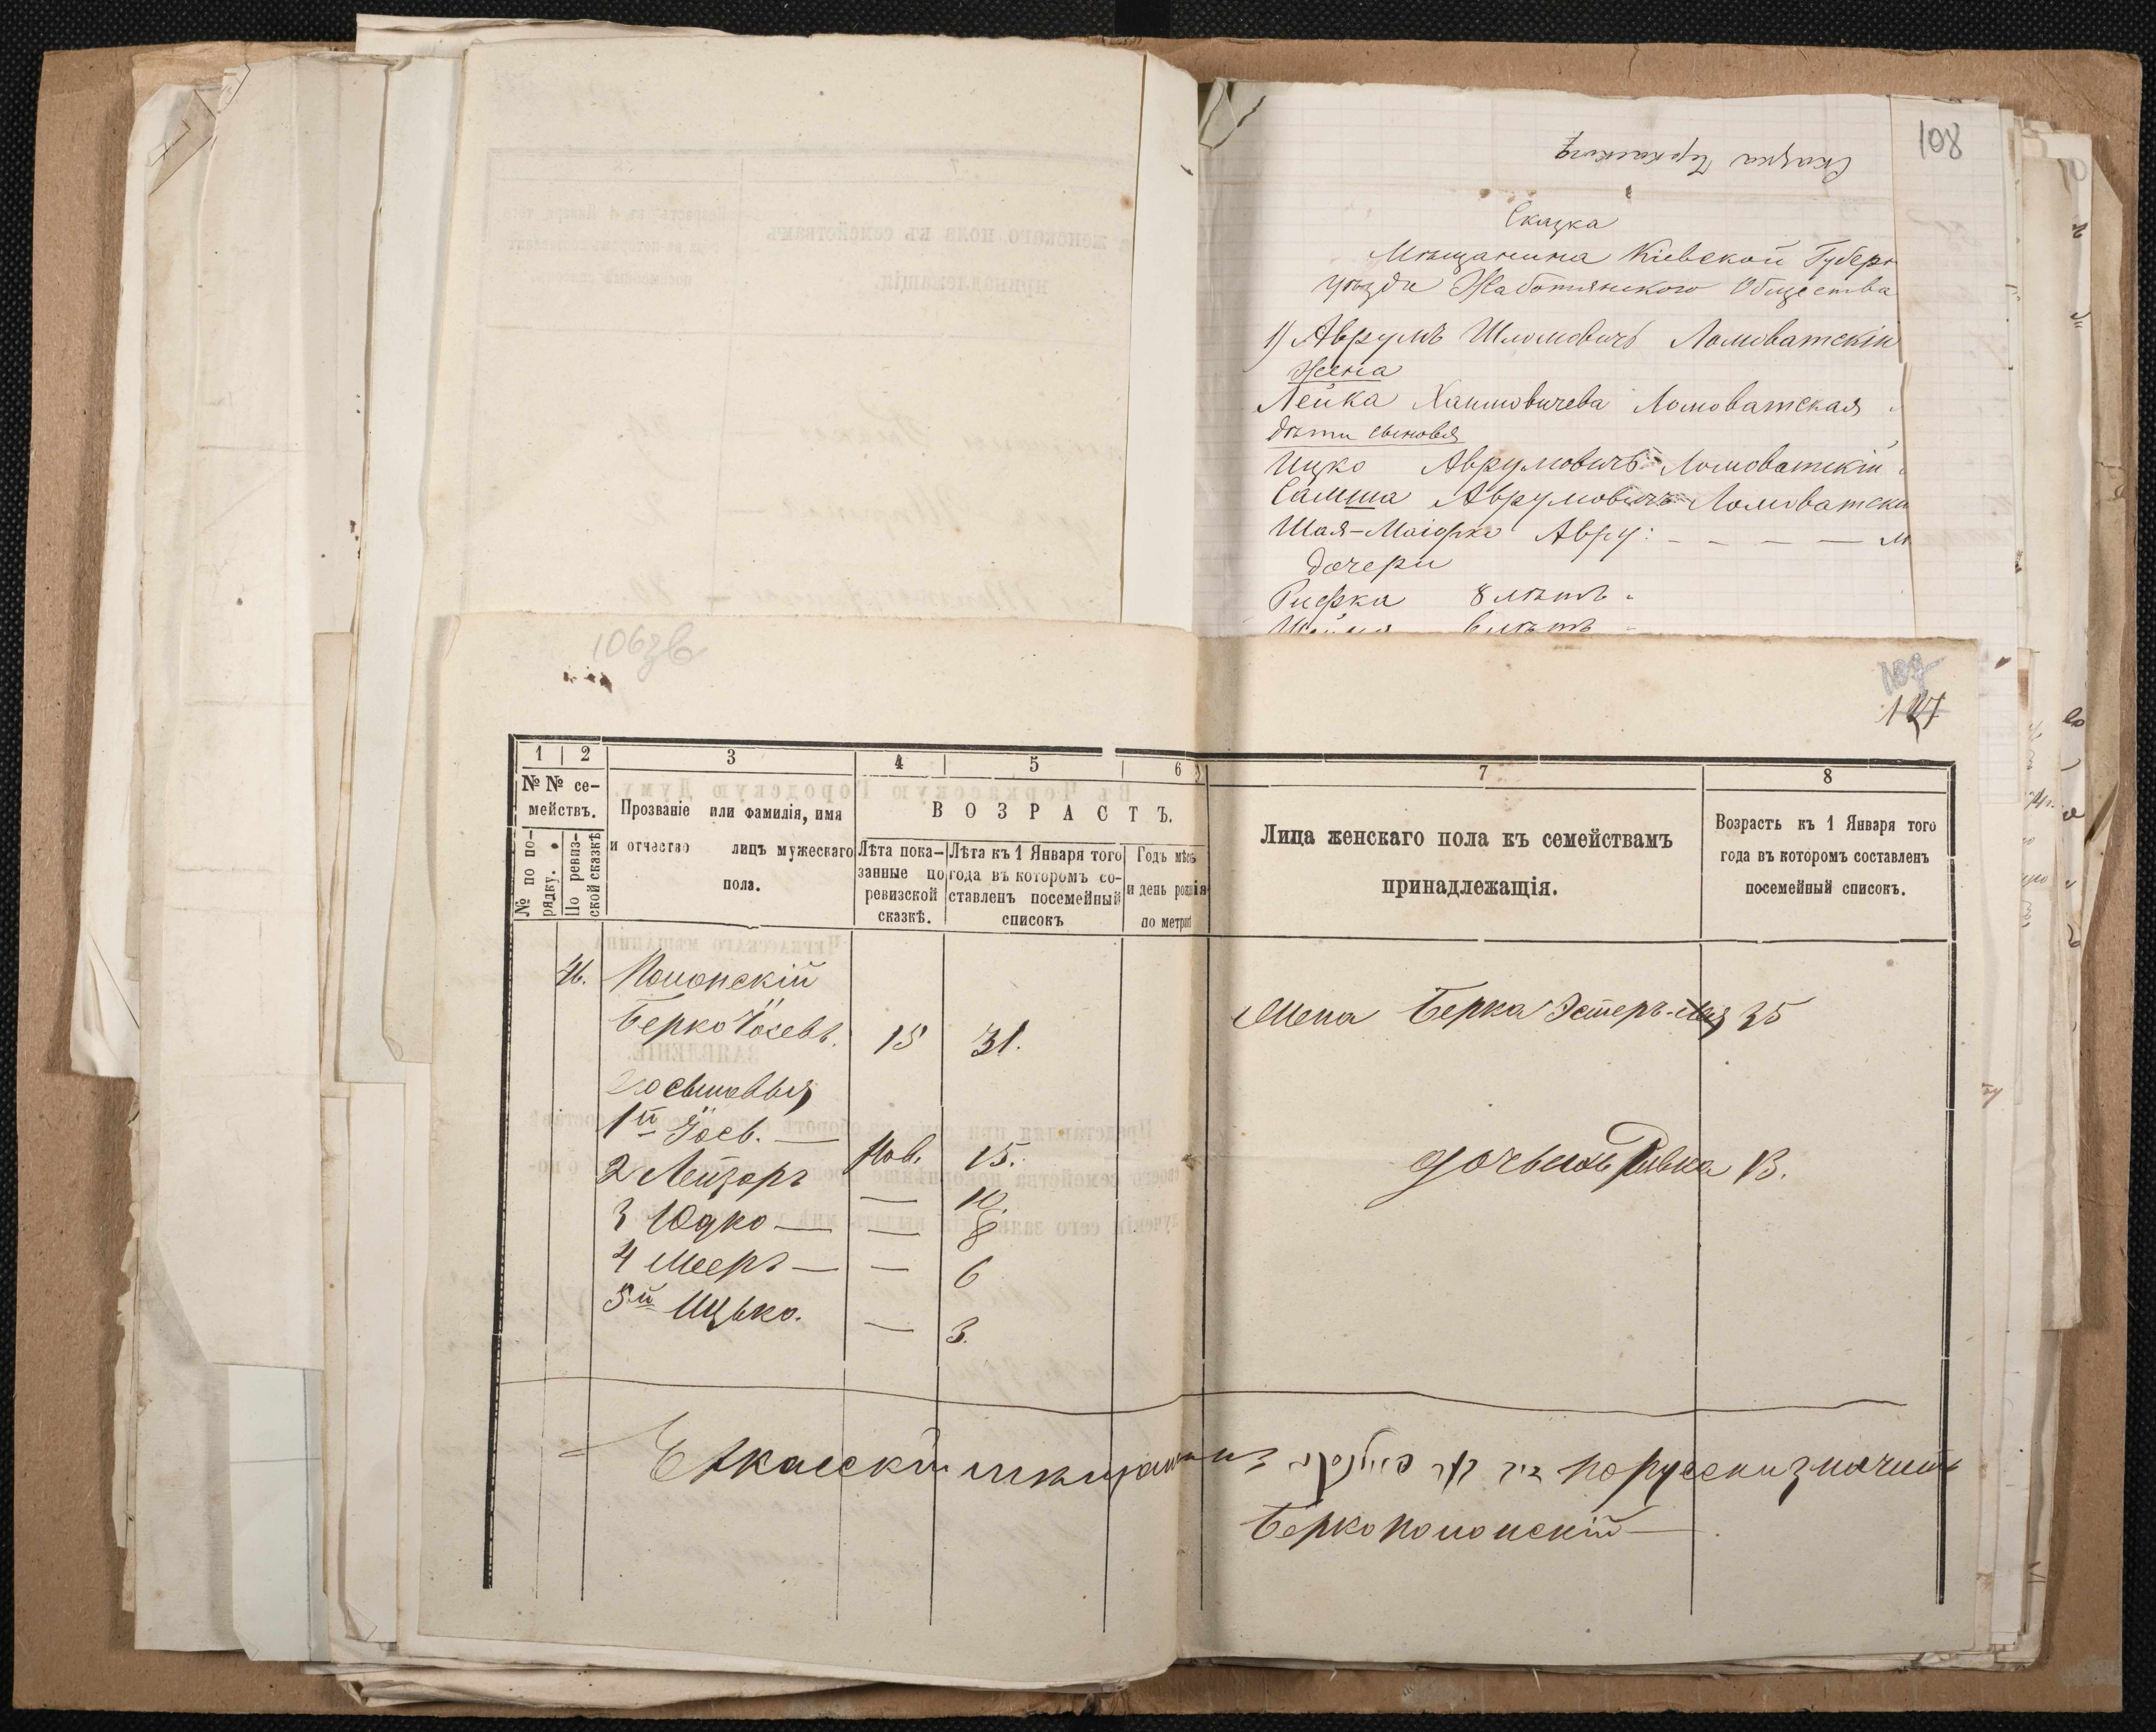 108
Сказка Черкаского
Сказка
Мѣщанина Кіевской Губерн
уѣзда Жаботянского Общества
1) Аврумъ Шломовичъ Ломоватскій
Жена
Лейка Хаимовичева Ломоватская
Дѣти сыновья
Ицко Аврумовичъ Ломоватскій
Самша Аврумовичъ Ломоватски
Шая-Маіорко Авру: - - - - м
дочери
Рифка 8 лѣтъ
6 лѣтъ
106зв
107
127
1 2 3 4 5 6 7 8
№№ се-
мействъ.
№ по по-
рядку.
По ревиз-
ской сказкѣ
Прозваніе или фамилія, имя
и отчество лицъ мужескаго
пола.
ВОЗРАСТЪ.
Лѣта пока-
занные по
ревизской
сказкѣ.
Лѣта къ 1 Января того
года въ которомъ со-
ставленъ посемейный
списокъ
Годъ мѣсь
и день рожнія
по метрик
Лица женскаго пола къ семействамъ
принадлежащія.
Возрасть къ 1 Января того
года въ которомъ составленъ
посемейный списокъ.
Полонскій
Берко Іосевъ. 15 31. Жена Берка Эстеръ- 35
Его сыновья
1й Іосъ. — Нов. 15. дочь ихъ Ривка 13.
2 Лейзоръ — 10.
3 Юдко — — 8
4 Мееръ — — 6
5й Ицько. — 3.
мѣщанинъ порусски значитъ
Берко Полонскій